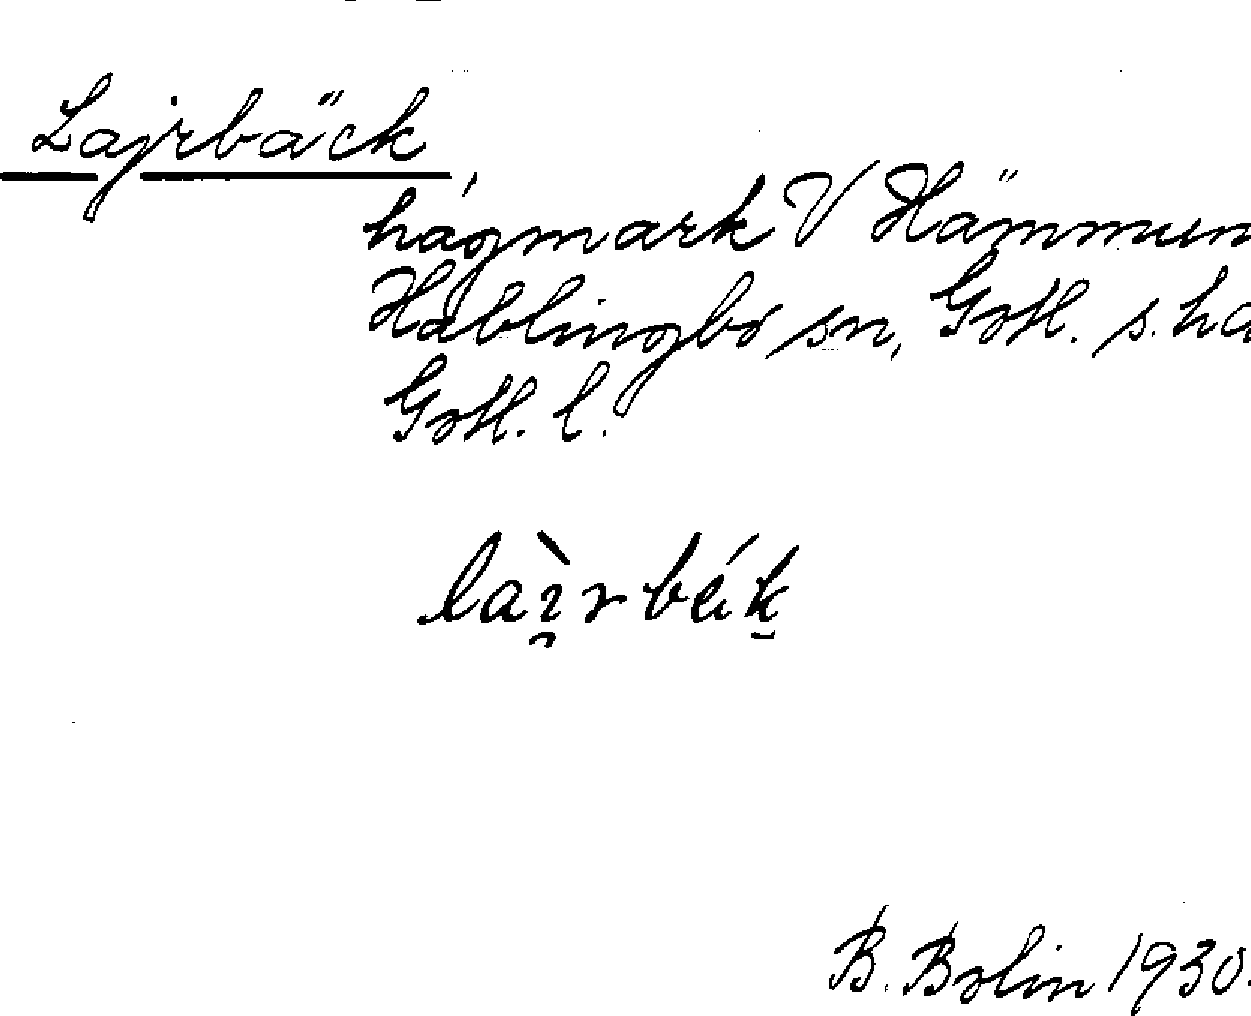 Lajrbäck,
hagmark V Hämmun
Hablingbo sn, Gotl. s. hä
Gotl. l.
B. Bolin 1930.